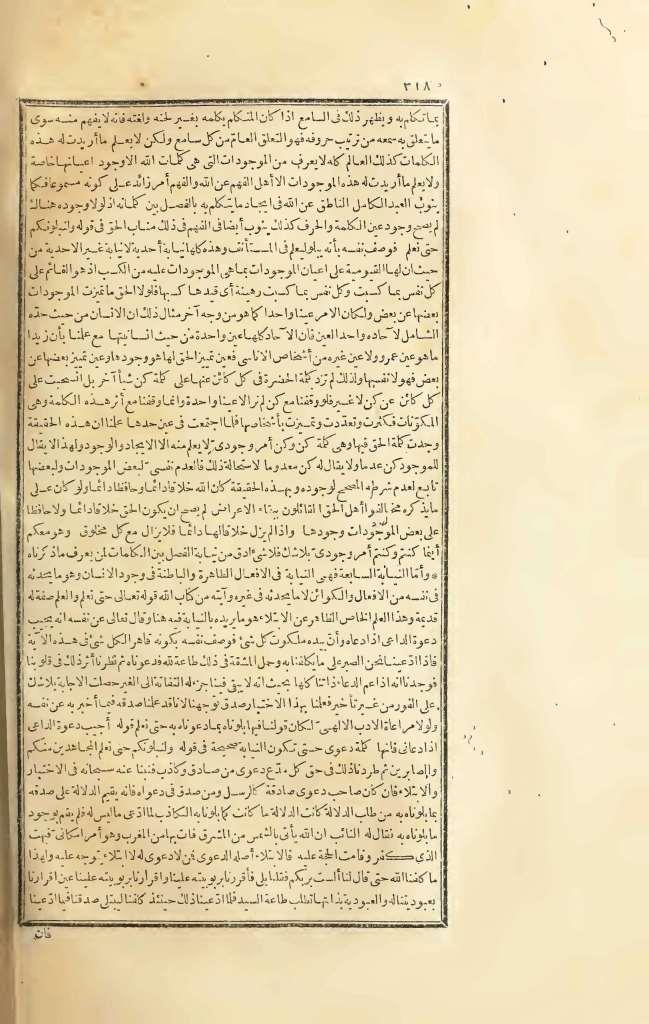 ٣١٨
بما تكلم به ويظهر ذلك فى السامع اذا كان المتكلم يكلمه بغير لحنه ولغته فانه لا يفهم منه سوى
ما يتعلق به سمعه من ترتيب حروفه فهو التعلق العام من كل سامع ولكن لا يعلم ما أريدت له هذه
الكلمات كذلك العالم كله لا يعرف من الموجودات التى هى كلمات الله الا وجود اعيانها خاصة
ولا يعلم ما أريدت له هذه الموجودات الا أهل الفهم عن الله والفهم أمر زائد على كونه مسموعا فكما
ينوب العبد الكامل الناطق عن الله فى ايجاد ما يتكلم به بالفصل بين كلماته اذ لولا وجوده هنالك
لم يصح وجود عين الكلمة والحرف كذلك ينوب أيضا فى الفهم فى ذلك مناب الحق فى قوله ولنبلونكم
حتى نعلم فوصف نفسه بأنه يبلو ليعلم فى المستأنف وهذه كلها نيابة أحدية لا نيابة غير الاحدية من
حيث ان لها القيومية على اعيان الموجودات بما هى الموجودات عليه من الكسب اذ هو القائم على
كل نفس بما كسبت وكل نفس بما كسبت رهينة أى قيدها كسبها فلولا الحق ما تميزت الموجودات
بعضها عن بعض ولكان الامر عينا واحدا كما هو من وجه آخر مثال ذلك ان الانسان من حيث حده
الشامل لآحاده واحد العين فان الآحاد كلها عين واحدة من حيث انسانيتها مع علمنا بأن زيدا
ما هو عين عمرو ولا عين غيره من أشخاص الاناسى فعين تمييز الحق لها هو وجودها وعين تمييز بعضها عن
بعض فهو لانفسها ولذلك لم تزد كلمة الحضرة فى كل كائن عنها على كلمة كن شيأ آخر بل انسحبت على
كل كائن عين كن لا غير فلو وقفنا مع كن لم نر الا عينا واحدة وانما وقفنا مع أثر هذه الكلمة وهى
المكونات فكثرت وتعددت وتميزت بأشخاصها فلما اجتمعت فى عين حدها علمنا ان هذه الحقيقة
وجدت كلمة الحق فيها وهى كلمة كن وكن أمر وجودى لا يعلم منه الا الايجاد والوجود ولهذا لا يقال
للموجود كن عدما ولا يقال له كن معدوما لاستحالة ذلك فالعدم نفسى لبعض الموجودات ولبعضها
تابع لعدم شرطه المصحح لوجوده وبهذه الحقيقة كان الله خلاقا دائما وحافظا دائما ولو كان على
ما يذكره مخالفوا أهل الحق القائلون ببقاء الاعراض لم يصح أن يكون الحق خلاقا دائما ولا حافظا
على بعض الموجودات وجودها واذا لم يزل خلاقا لها دائما فلا يزال مع كل مخلوق وهو معكم
أينما كنتم وكنتم أمر وجودى بلا شك فلا شئ أدق من نيابة الفصل بين الكلمات لمن يعرف ما ذكرناه
* وأما النيابة السابعة فهى النيابة فى الافعال الظاهرة والباطنة فى وجود الانسان وهو ما يحدثه
فى نفسه من الافعال والكوائن لا ما يحدثه فى غيره وآيته من كتاب الله قوله تعالى حتى نعلم والعلم صفة له
قديمة وهذا العلم الخاص الظاهر عن الابتلاء هو ما يريده بالنيابة فيه هنا وقال تعالى عن نفسه انه يجيب
دعوة الداعى اذا دعاه وأن بيده ملكوت كل شئ فوصف نفسه بكونه قاهر الكل شئ فى هذه الآية
فاذا ادعينا نحن الصبر على ما يكلفنا به وحمل المشقة فى ذلك طاعة لله فدعوناه ثم نظرنا أثر ذلك فى قلوبنا
فوجدناه انه اذا عم الدعاء ذاتنا كلها بحيث انه لا يبقى فينا جزء له التفاتة الى الغير حصلت الاجابة بلا شك
على الفور من غير تأخير فعلمنا بهذا الاختبار صدق توجهنا لانا قد علمنا صدقه فيما أخبر به عن نفسه
ولولا مراعاة الادب الالهى لكان قولنا فيها بلوناه بما دعوناه به حتى نعلم قوله أجيب دعوة الداعى
اذا دعانى فانها كلمة دعوى حتى تكون النيابة صحيحة فى قوله ولنبلونكم حتى نعلم المجاهدين منكم
والصابرين ثم طردنا ذلك فى حق كل مدع دعوى من صادق وكاذب فنبنا عنه سبحانه فى الاختبار
والابتلاء فان كان صاحب دعوى صادقة كالرسل ومن صدق فى دعواه فانه يقيم الدلالة على صدقه
بما بلوناه به من طلب الدلالة كانت الدلالة ما كانت كما بلونا به الكاذب لما ادعى ما ليس له فلم يقم بوجود
ما بلوناه به فقال له النائب ان الله يأتى بالشمس من المشرق فات بها من المغرب وهو أمر امكانى فبهت
الذى كفر وقامت الحجة عليه فالابتلاء أصله الدعوى فمن لا دعوى له لا ابتلاء يتوجه عليه ولهذا
ما كلفنا الله حتى قال لنا ألست بربكم فقلنا بلى فأقررنا بربوبيته علينا واقرارنا بربوبيته علينا عين اقرارنا
بعبوديتنا له والعبودية بذاتها تطلب طاعة السيد فلما ادعينا ذلك حينئذ كلفنا ليبتلى صدقنا فيما ادعينا
فان